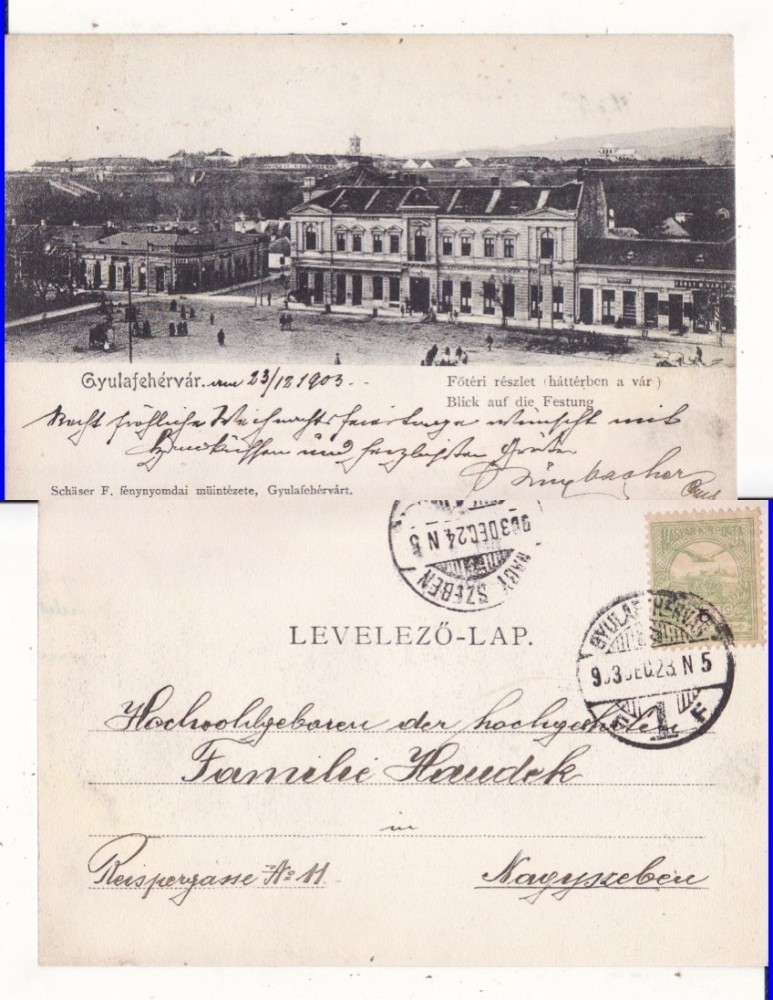 Gyulafehérvár. am 23/12 1903. ..
Főtéri részlet (háttérben a vár)
Blick auf die Festung
Recht fröhliche Weihnachtsfeiertage wünscht mit
Handküssen und herzlichsten Grüßen
Schäser F. fénynyomdai műintézete, Gyulafehérvárt.
NAGY SZEBEN
903 DEC. 24 N 5
MAGYAR KIR. POSTA
GYULAFEHÉRVÁR
903 DEC. 23. N 5
1 F
LEVELEZŐ-LAP.
Hochwohlgeboren der hochgeehrten
Familie Haudek
in
Reispergasse No 11
Nagyszeben